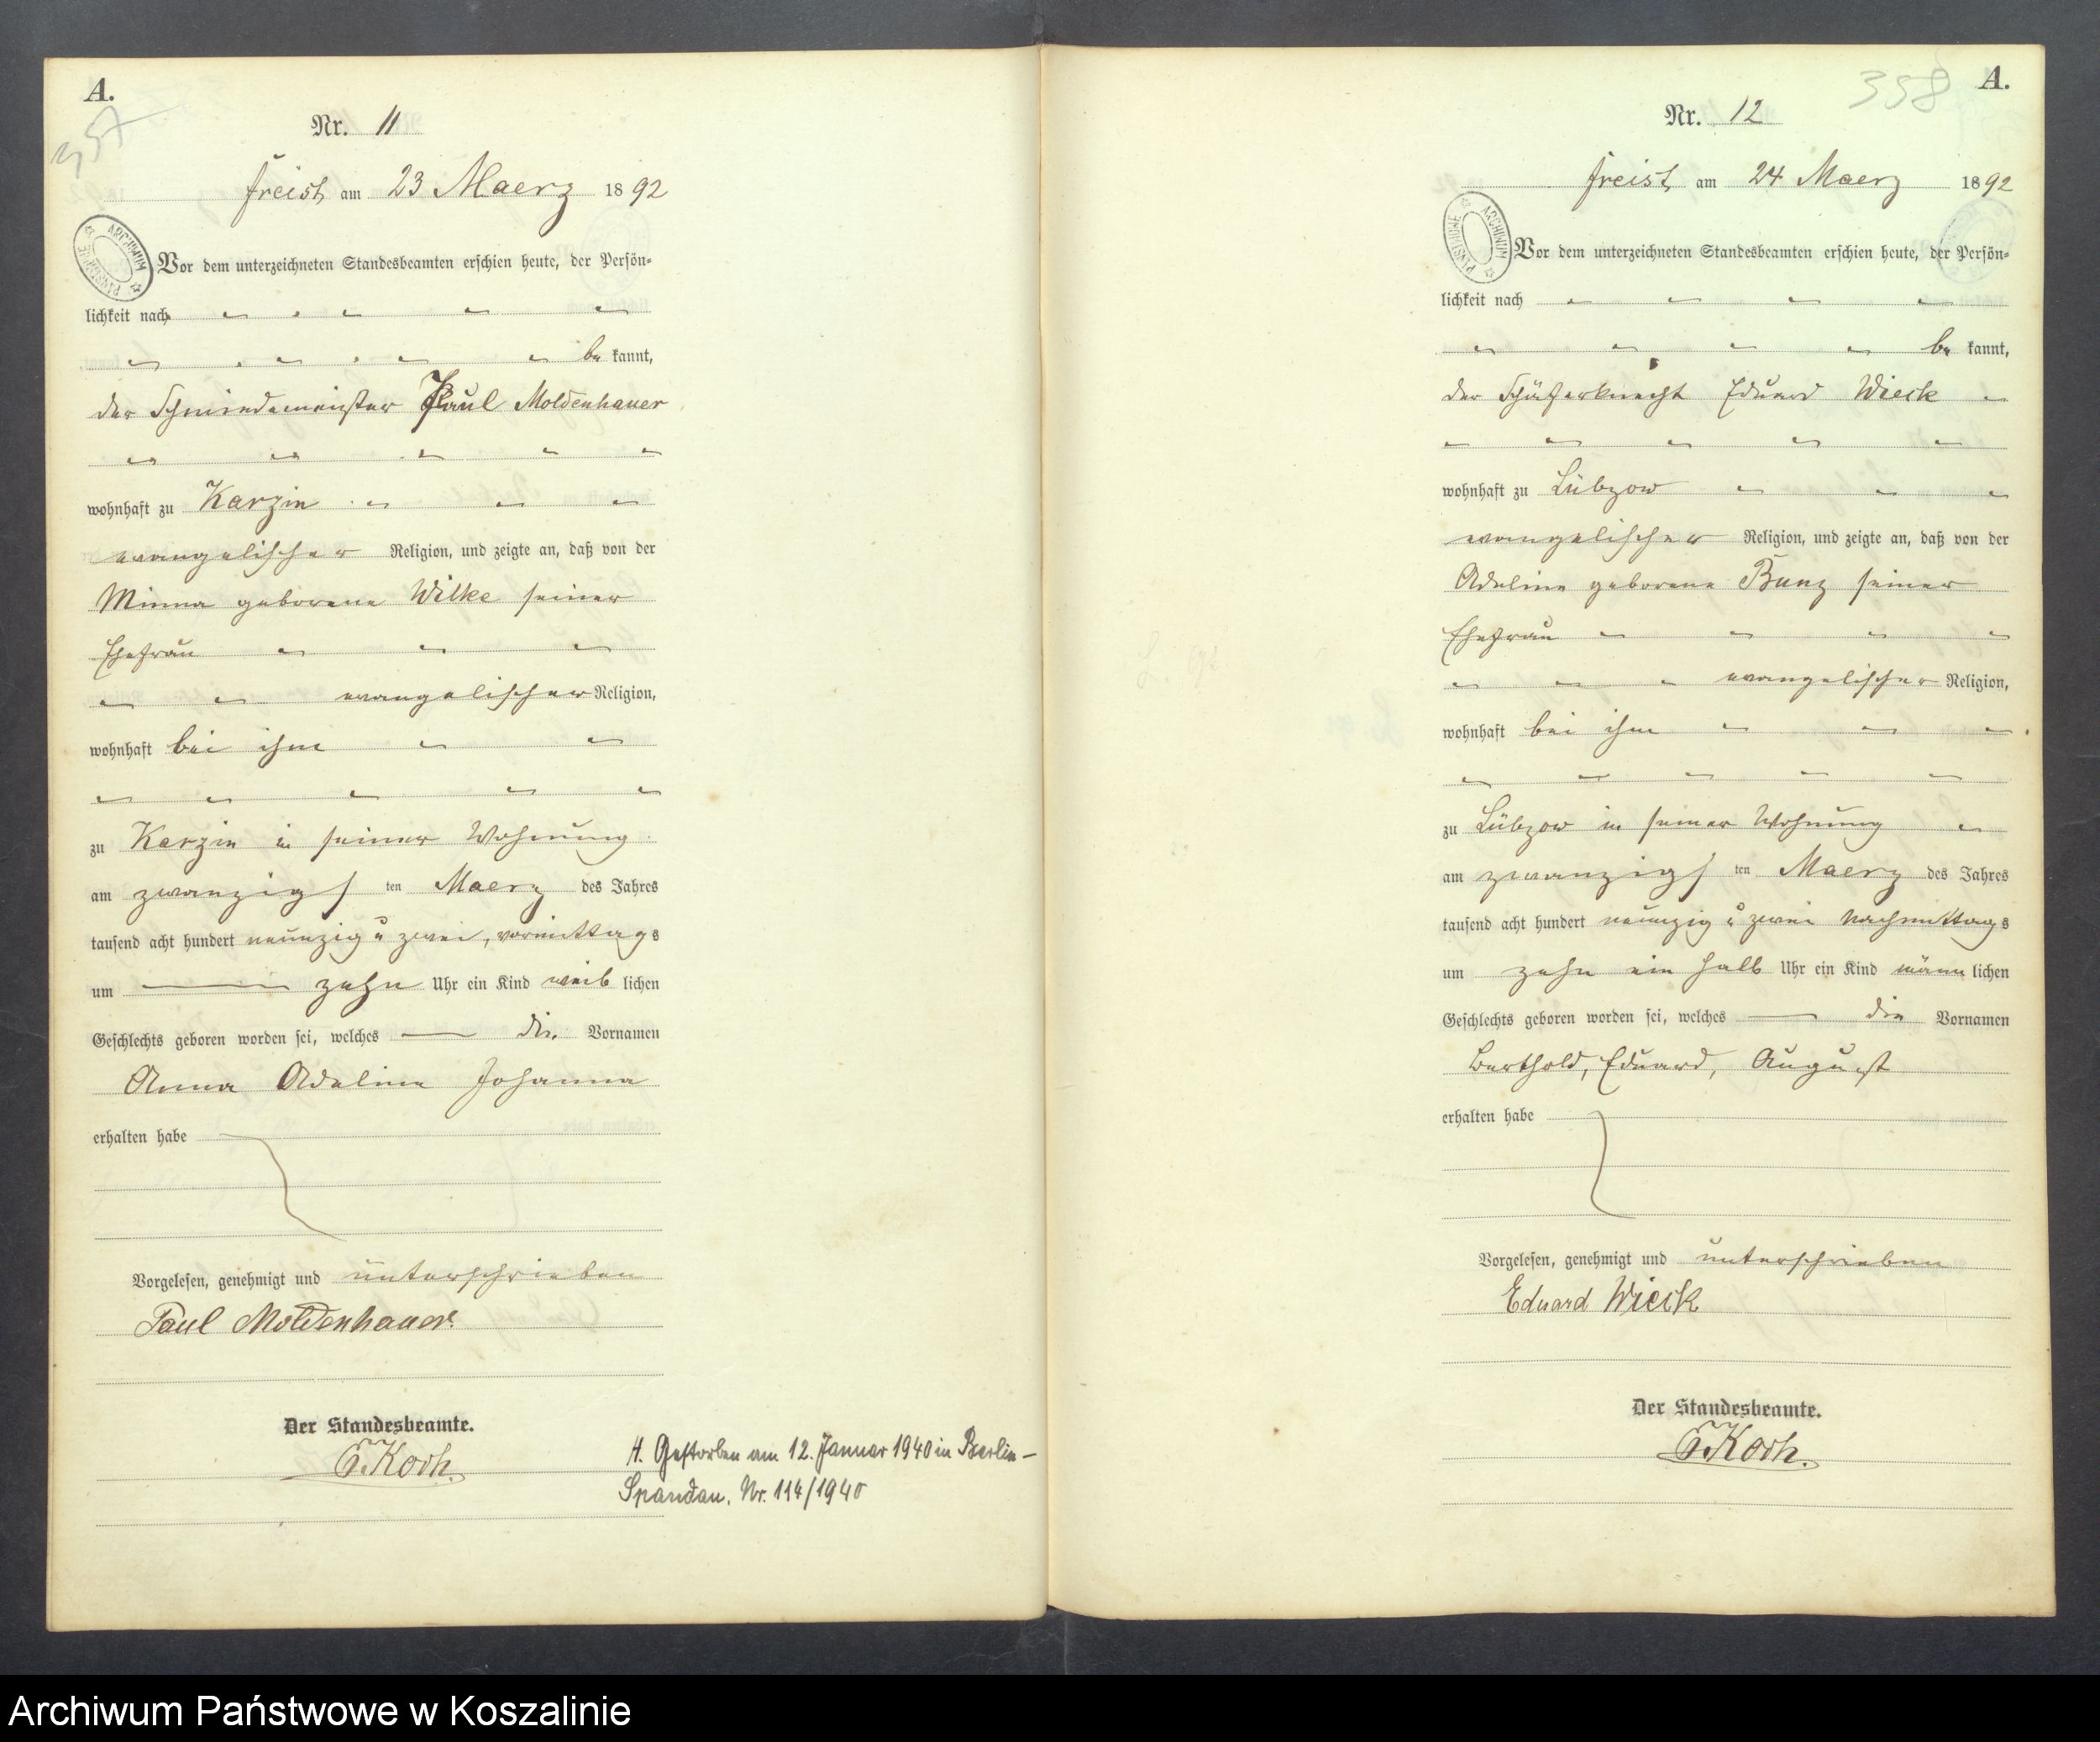 A.
357
Nr. 11
Freist, am 23 Maerz 1892
ARCHIWUM PAŃSTWOWE
Vor dem unterzeichneten Standesbeamten erschien heute, der Persön-
lichkeit nach
be kannt,
der Schmiedemeister Paul Moldenhauer
wohnhaft zu Karzin
evangelischer Religion, und zeigte an, daß von der
Minna geborene Wilke seiner
Ehefrau
evangelischer Religion,
wohnhaft bei ihm
zu Karzin in seiner Wohnung
am zwanzigs ten Maerz des Jahres
tausend acht hundert neunzig u zwei, vormittags
um zehn Uhr ein Kind weib lichen
Geschlechts geboren worden sei, welches die Vornamen
Anna Adeline Johanna
erhalten habe
Vorgelesen, genehmigt und unterschrieben
Paul Moldenhauer.
Der Standesbeamte.
Koch.
Gestorben am 12. Januar 1940 in Berlin-
Spandau. Nr. 114/1940
358 A.
Nr. 12
Freist, am 24 Maerz 1892
ARCHIWUM PAŃSTWOWE
Vor dem unterzeichneten Standesbeamten erschien heute, der Persön-
lichkeit nach
be kannt,
der Schäferknecht Eduard Wieck
wohnhaft zu Lübzow
evangelischer Religion, und zeigte an, daß von der
Adeline geborene Bunz seiner
Ehefrau
evangelischer Religion,
wohnhaft bei ihm
zu Lübzow in seiner Wohnung
am zwanzigs ten Maerz des Jahres
tausend acht hundert neunzig u zwei Nachmittags
um zehn ein halb Uhr ein Kind männ lichen
Geschlechts geboren worden sei, welches die Vornamen
Berthold, Eduard, August
erhalten habe
Vorgelesen, genehmigt und unterschrieben
Eduard Wieck
Der Standesbeamte.
Koch.
Archiwum Państwowe w Koszalinie